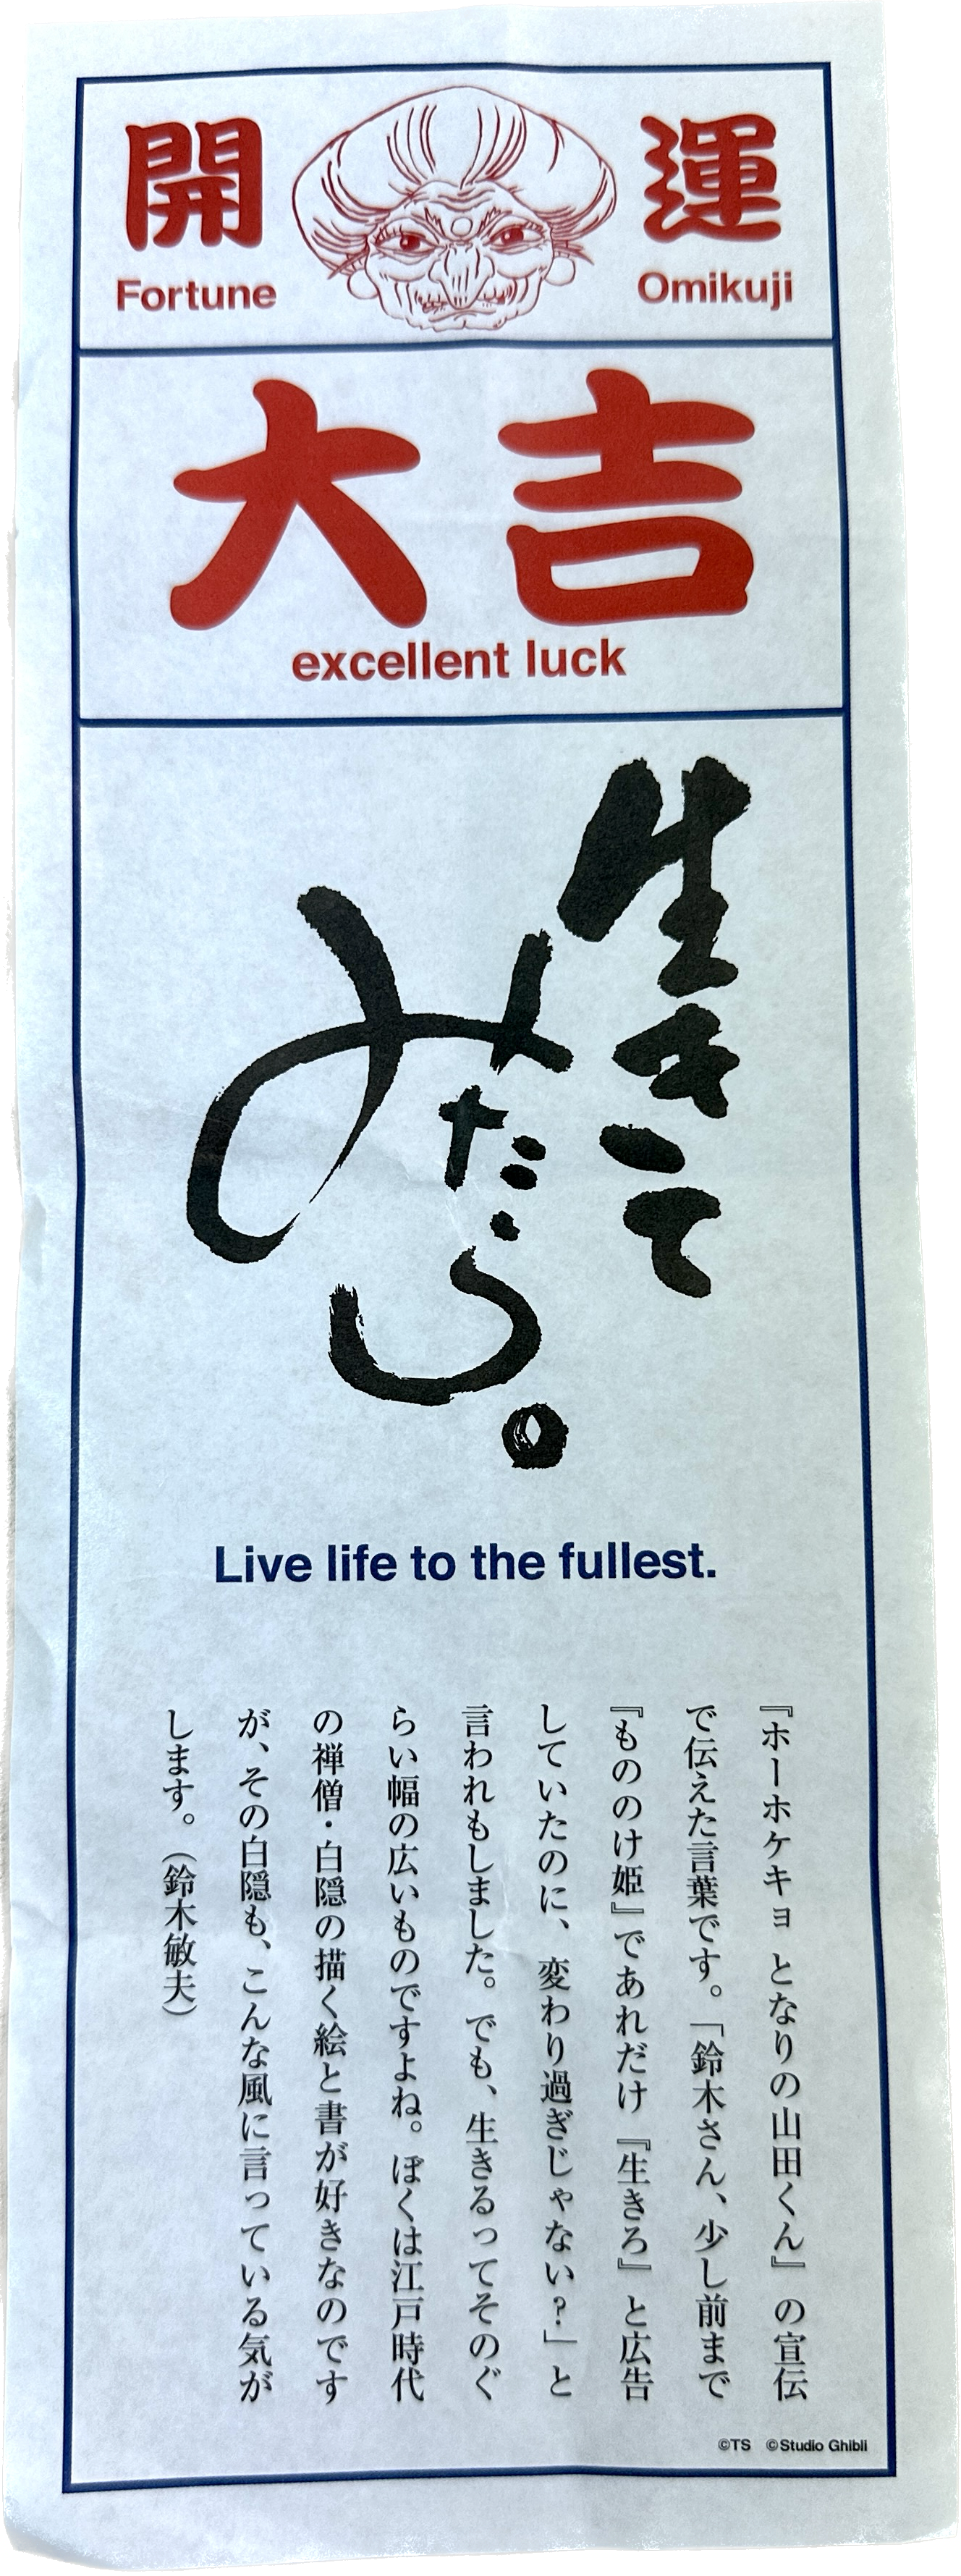 開運
Fortune Omikuji
大吉
excellent luck
生きて
みたら。
Live life to the fullest.
『ホーホケキョ となりの山田くん』の宣伝
で伝えた言葉です。「鈴木さん、少し前まで
『もののけ姫』であれだけ『生きろ』と広告
していたのに、変わり過ぎじゃない？」と
言われもしました。でも、生きるってそのぐ
らい幅の広いものですよね。ぼくは江戸時代
の禅僧・白隠の描く絵と書が好きなのです
が、その白隠も、こんな風に言っている気が
します。（鈴木敏夫）
©TS ©Studio Ghibli